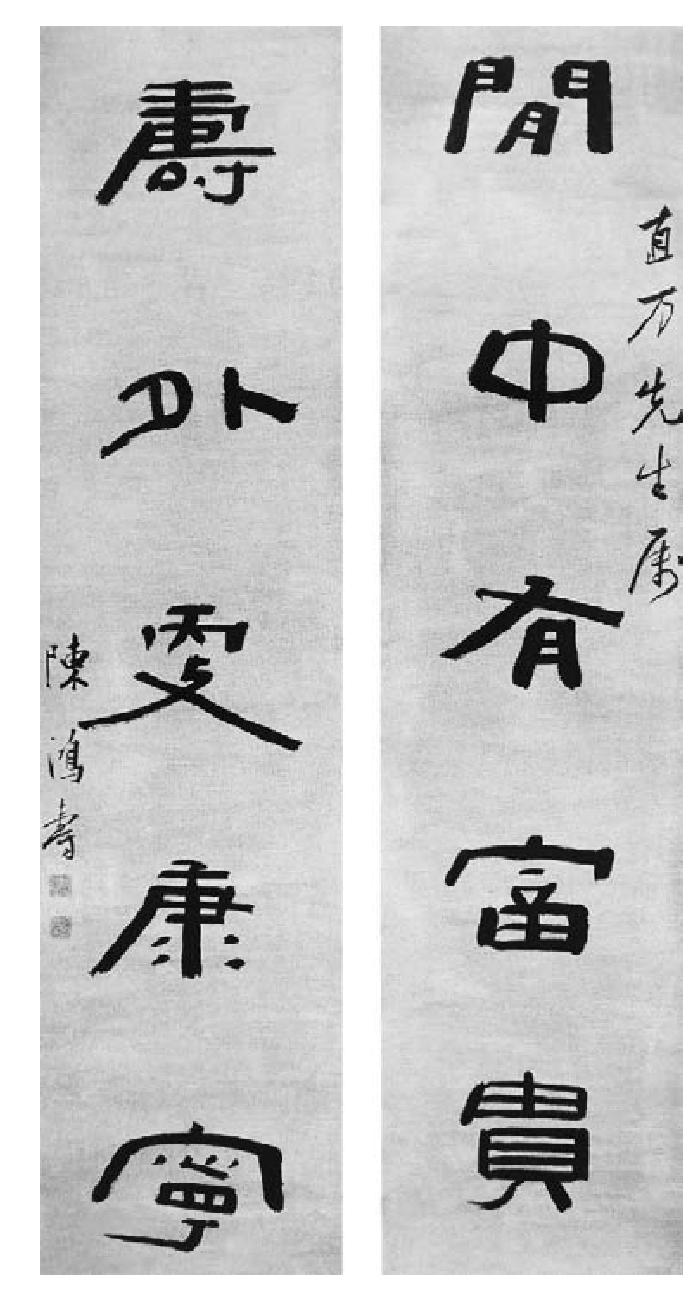 閒中有富貴
直方先生属
壽外更康寧
陳鴻壽